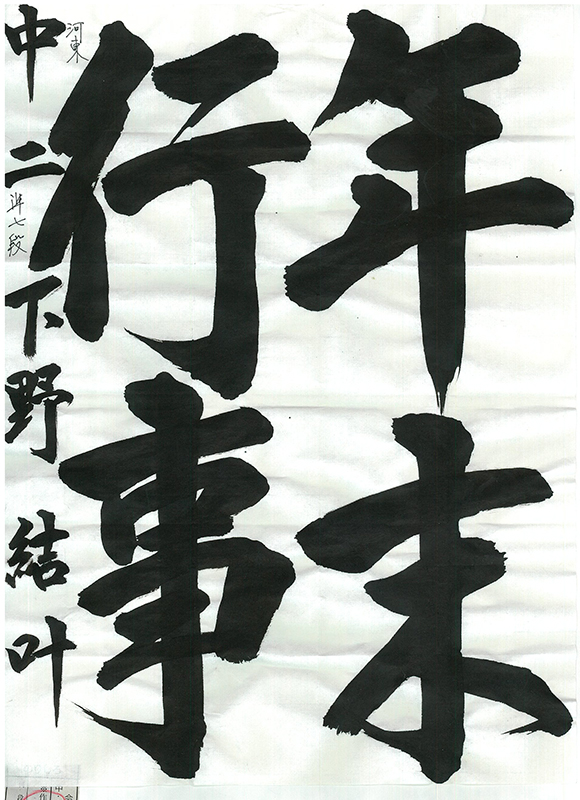 年末
行事
河東
中二 準七段 下野結叶